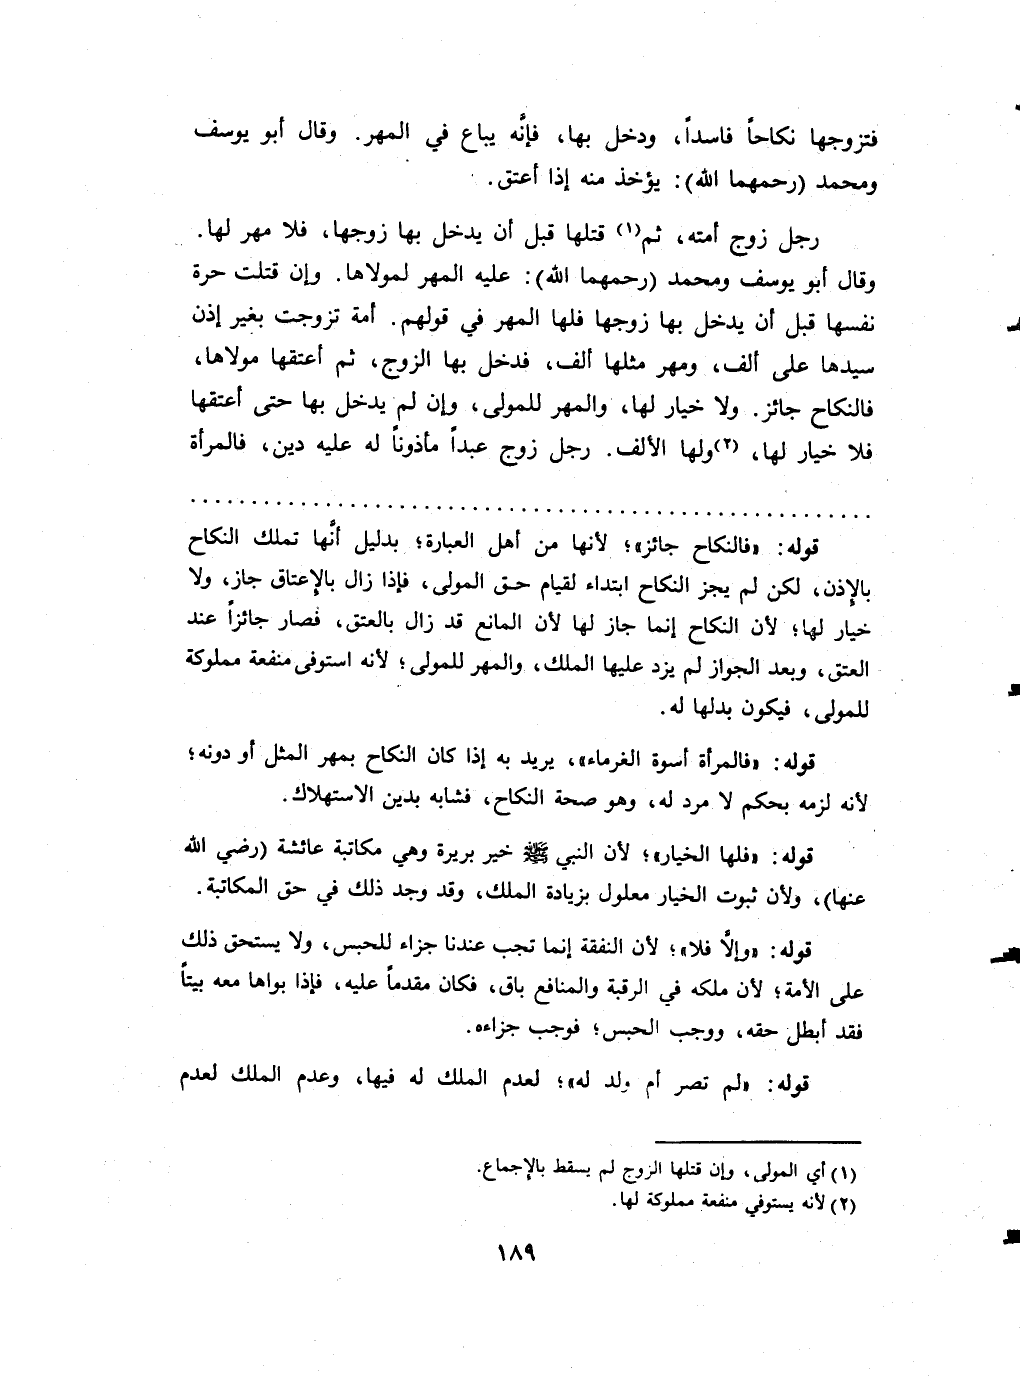 فتزوجها نكاحاً فاسداً، ودخل بها، فإنَّه يباع في المهر. وقال أبو يوسف
ومحمد (رحمهما الله): يؤخذ منه إذا أعتق.
رجل زوج أمته، ثم(١) قتلها قبل أن يدخل بها زوجها، فلا مهر لها.
وقال أبو يوسف ومحمد (رحمهما الله): عليه المهر لمولاها. وإن قتلت حرة
نفسها قبل أن يدخل بها زوجها فلها المهر في قولهم. أمة تزوجت بغير إذن
سيدها على ألف، ومهر مثلها ألف، فدخل بها الزوج، ثم أعتقها مولاها،
فالنكاح جائز. ولا خيار لها، والمهر للمولى، وإن لم يدخل بها حتى أعتقها
فلا خيار لها، (٢)ولها الألف. رجل زوج عبداً مأذوناً له عليه دين، فالمرأة
قوله: «فالنكاح جائز»؛ لأنها من أهل العبارة؛ بدليل أنَّها تملك النكاح
بالإذن، لكن لم يجز النكاح ابتداء لقيام حق المولى، فإذا زال بالإعتاق جاز، ولا
خيار لها؛ لأن النكاح إنما جاز لها لأن المانع قد زال بالعتق، فصار جائزاً عند
العتق، وبعد الجواز لم يزد عليها الملك، والمهر للمولى؛ لأنه استوفى منفعة مملوكة
للمولى، فيكون بدلها له.
قوله: «فالمرأة أسوة الغرماء»، يريد به إذا كان النكاح بمهر المثل أو دونه؛
لأنه لزمه بحكم لا مرد له، وهو صحة النكاح، فشابه بدين الاستهلاك.
قوله: «فلها الخيار»؛ لأن النبي ﷺ خير بريرة وهي مكاتبة عائشة (رضي الله
عنها)، ولأن ثبوت الخيار معلول بزيادة الملك، وقد وجد ذلك في حق المكاتبة.
قوله: «وإلَّا فلا»؛ لأن النفقة إنما تجب عندنا جزاء للحبس، ولا يستحق ذلك
على الأمة؛ لأن ملكه في الرقبة والمنافع باق، فكان مقدماً عليه، فإذا بواها معه بيتاً
فقد أبطل حقه، ووجب الحبس؛ فوجب جزاءه.
قوله: «لم تصر أم ولد له»؛ لعدم الملك له فيها، وعدم الملك لعدم
(١) أي المولى، وإن قتلها الزوج لم يسقط بالإجماع.
(٢) لأنه يستوفي منفعة مملوكة لها.
١٨٩